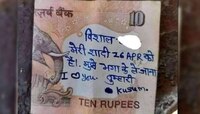 रिज़र्व बैंक
10
विशाल
मेरी शादी 26 APR को
है। मुझे भगा के ले जाना
I ♡ you तुम्हारी
kusum.
TEN RUPEES